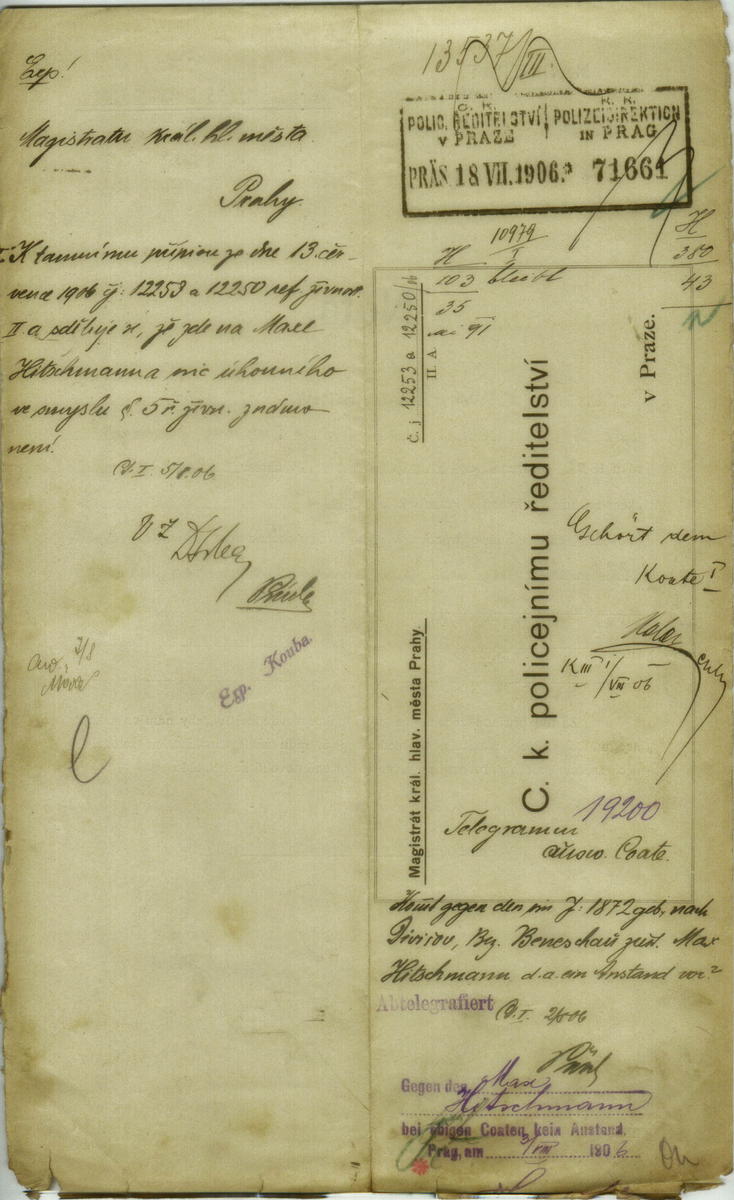 Exp!
Magistratu král. hl. města
Prahy.
K tamnímu přípisu ze dne 13. čer-
vence 1906 čj: 12253 a 12250 ref. živnost.
II a sděluje se, že zde na Maxe
Hitschmanna nic úhonného
ve smyslu §. 5 ř. živn. známo
není.
5/8.06
Exp. Kouba.
13537/III.
C. K.
POLIC. ŘEDITELSTVÍ
v PRAZE
K. K.
POLIZEIDIREKTION
in PRAG
PRÄS 18 VII. 1906 71661
H 10979
I
H
380
43
103
35
91
Č. j 12253 a 12250/06
II. A
C. k. policejnímu ředitelství
v Praze.
Magistrát král. hlav. města Prahy
Gehört dem
Koate I
K III 1/VIII 06
19200
Telegramm
ausw. Coate.
Komt gegen den im J: 1872 geb, nach
Divišov, Bez. Beneschau zust. Max
Hitschmann d.a. ein Anstand vor?
Abtelegrafiert
2/8 06
Gegen den Max
Hitschmann
bei obigen Coaten kein Anstand.
Prag, am 3/VIII 1906